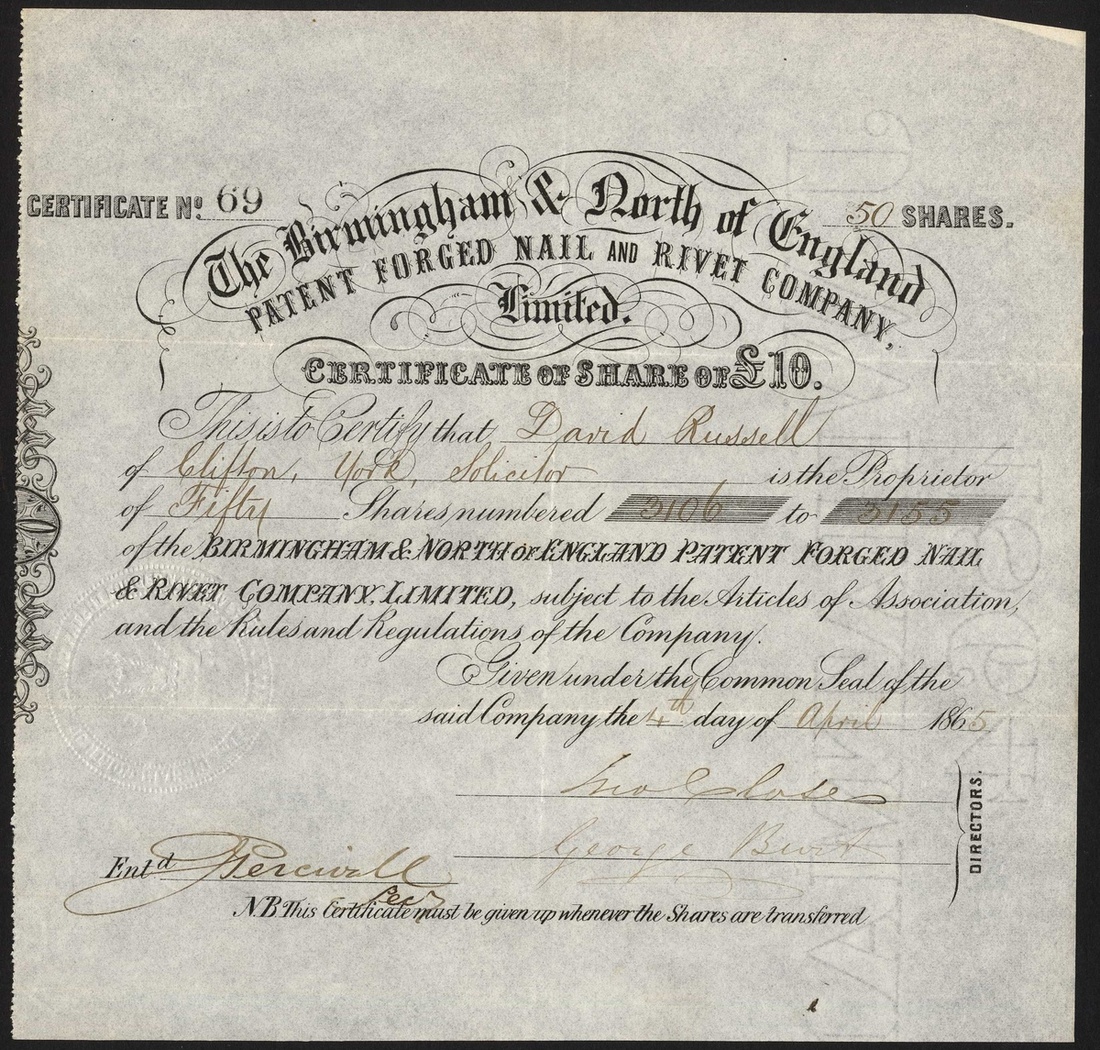 CERTIFICATE Nº. 69
50 SHARES.
The Birmingham & North of England
PATENT FORGED NAIL AND RIVET COMPANY,
Limited.
CERTIFICATE OF SHARE OF £10.
This is to Certify that David Russell
of Clifton, York, Solicitor is the Proprietor
of Fifty Shares, numbered 3106 to 3155
of the BIRMINGHAM & NORTH OF ENGLAND PATENT FORGED NAIL
& RIVET COMPANY, LIMITED, subject to the Articles of Association,
and the Rules and Regulations of the Company.
Given under the Common Seal of the
said Company the 4th day of April 1865
Jno Close
George
DIRECTORS.
Entd Percivall
Secy
N.B. This Certificate must be given up whenever the Shares are transferred